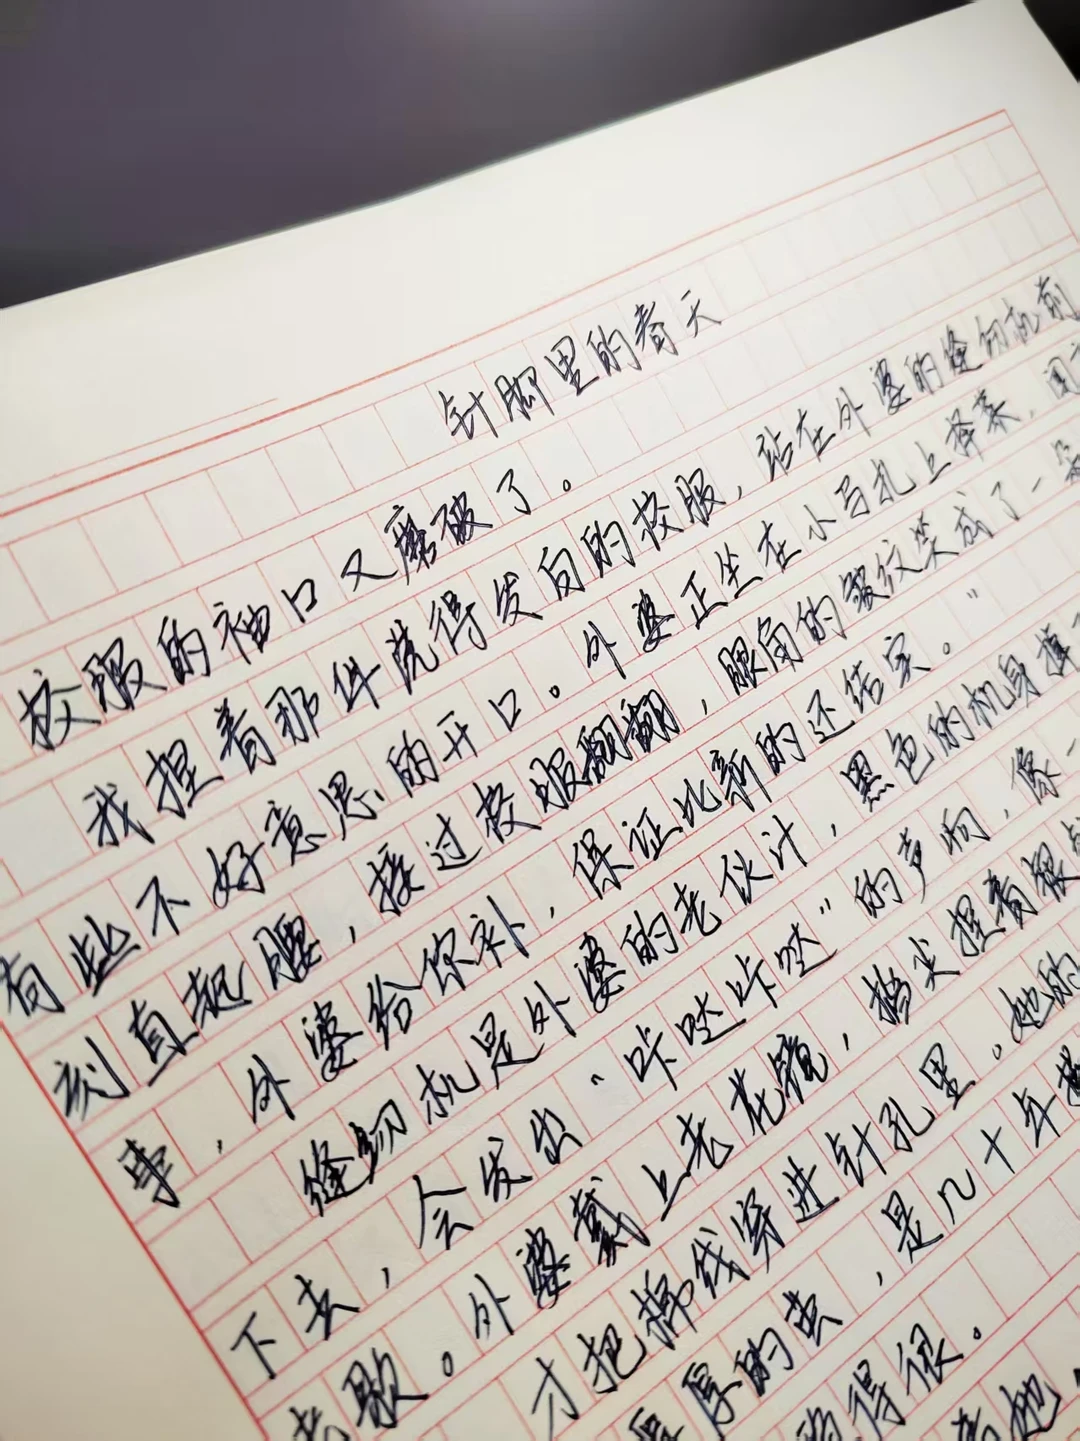 针脚里的春天
校服的袖口又磨破了。
我捏着那件洗得发白的校服，站在外婆的缝纫机前
有些不好意思的开口。外婆正坐在小马扎上择菜，闻
刻直起腰，接过校服翻翻，眼角的皱纹笑成了一朵
事，外婆给你补，保证比新的还结实。”
缝纫机是外婆的老伙计，黑色的机身掉
下去，会发出“咔哒咔哒”的声响，像一
老歌。外婆戴上老花镜，指尖捏着银
才把棉线穿进针孔里。她的
厚厚的茧，是几十年
得很。
着她